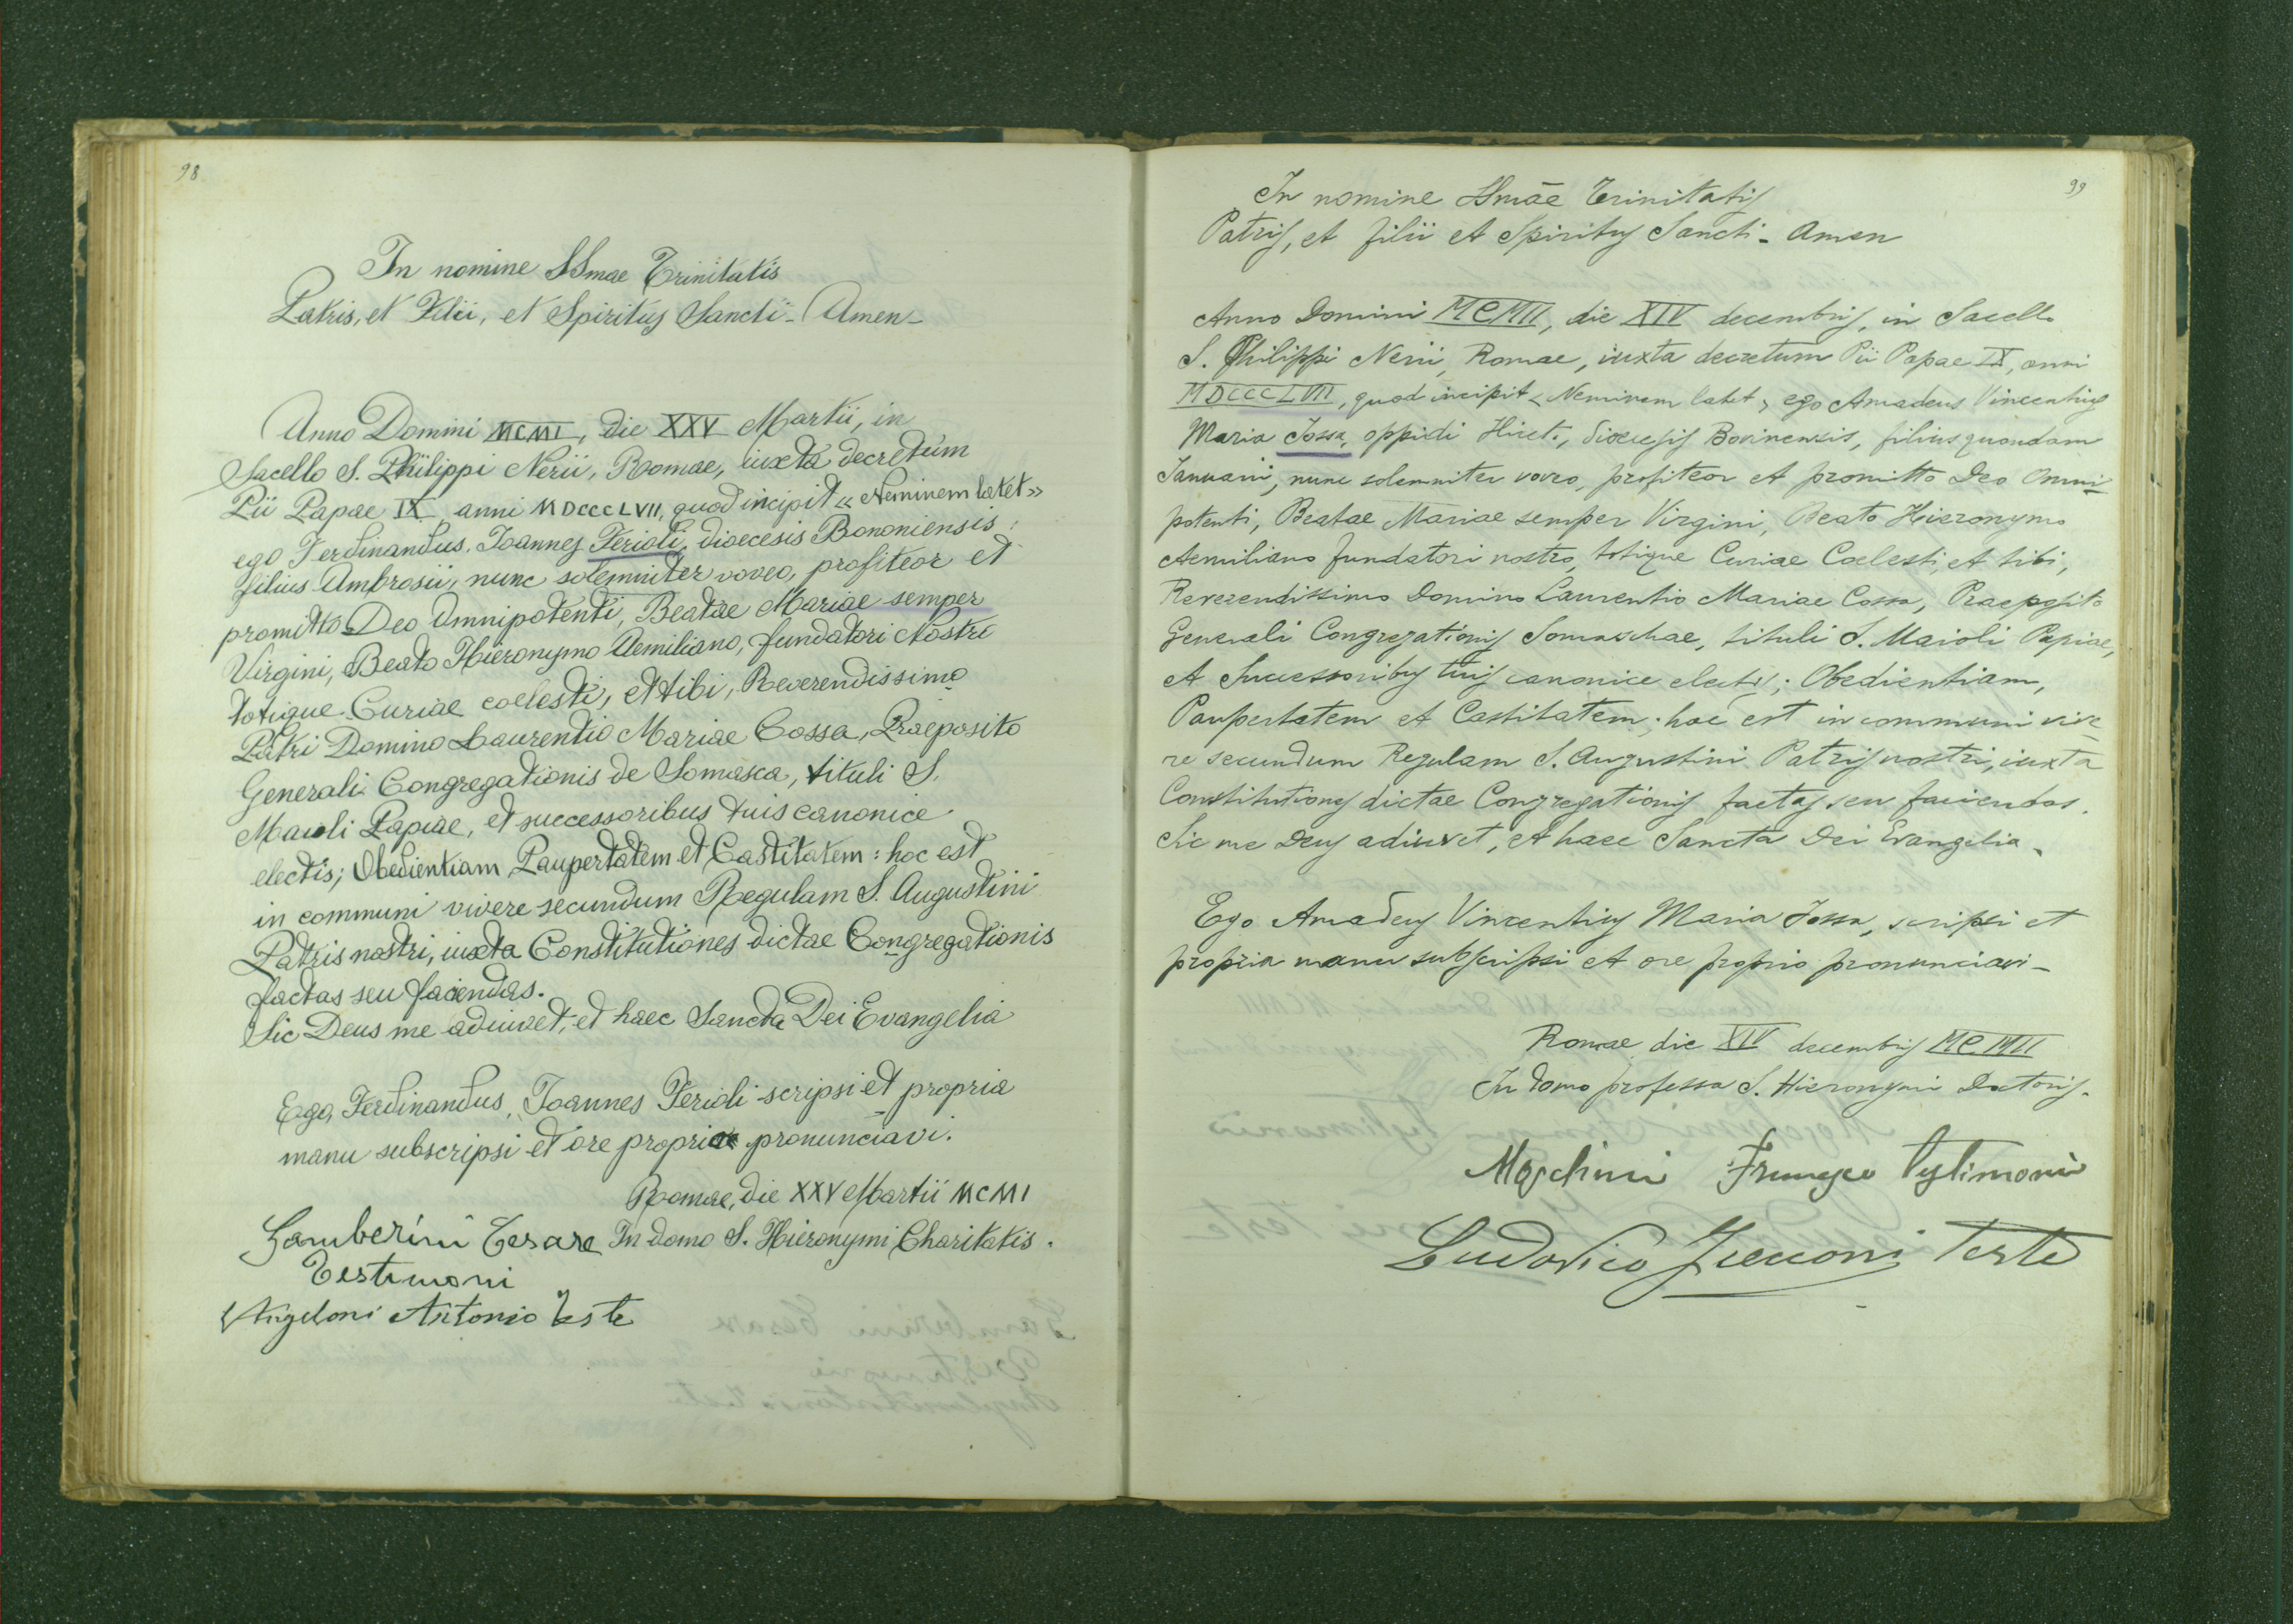 98
In nomine SSmae Trinitatis
Patris, et Filii, et Spiritus Sancti - Amen -
Anno Domini MCMI, die XXV Martii, in
Sacello S. Philippi Nerii, Romae, iuxta decretum
Pii Papae IX anni MDCCCLVII, quod incipit « Neminem latet »
ego Ferdinandus, Joannes Ferioli, dioecesis Bononiensis,
filius Ambrosii, nunc solemniter voveo, profiteor et
promitto Deo Omnipotenti, Beatae Mariae semper
Virgini, Beato Hieronymo Aemiliano, fundatori Nostri
totique Curiae coelesti, et tibi, Reverendissimo
Patri Domino Laurentio Mariae Cossa, Praeposito
Generali Congregationis de Somasca, tituli S.
Maioli Papiae, et successoribus tuis canonice
electis; Obedientiam, Paupertatem et Castitatem : hoc est
in communi vivere secundum Regulam S. Augustini
Patris nostri, iuxta Constitutiones dictae Congregationis
factas seu faciendas.
Sic Deus me adiuvet, et haec Sancta Dei Evangelia
Ego, Ferdinandus, Joannes Ferioli scripsi et propria
manu subscripsi et ore proprio pronunciavi.
Romae, die XXV Martii MCMI
Gamberini Cesare In domo S. Hieronymi Charitatis.
Testimoni
Angeloni Antonio Teste
99
In nomine SSmāe Trinitatis
Patris, et filii et Spiritus Sancti - Amen
Anno Domini MCMII, die XIV decembris, in Sacello
S. Philippi Nerii, Romae, iuxta decretum Pii Papae IX, anni
MDCCCLVII, quod incipit < Neminem latet > ego Amadeus Vincentius
Maria Jossa, oppidi, dioecesis Bovinensis, filius quondam
Januarii, nunc solemniter voveo, profiteor et promitto Deo Omni-
potenti, Beatae Mariae semper Virgini, Beato Hieronymo
Aemiliano fundatori nostro, totique Curiae Coelesti, et tibi,
Reverendissimo Domino Laurentio Mariae Cossa, Praeposito
Generali Congregationis Somaschae, tituli S. Maioli Papiae,
et Successoribus tuis canonice electis; Obedientiam,
Paupertatem et Castitatem : hoc est in communi vive-
re secundum Regulam S. Augustini Patris nostri, iuxta
Constitutiones dictae Congregationis factas seu faciendas.
Sic me Deus adiuvet, et haec Sancta Dei Evangelia.
Ego Amadeus Vincentius Maria Jossa, scripsi et
propria manu subscripsi et ore proprio pronunciavi -
Romae die XIV decembris MCMII
In domo professa S. Hieronymi Doctoris.
Moschini
Ludovico Teste